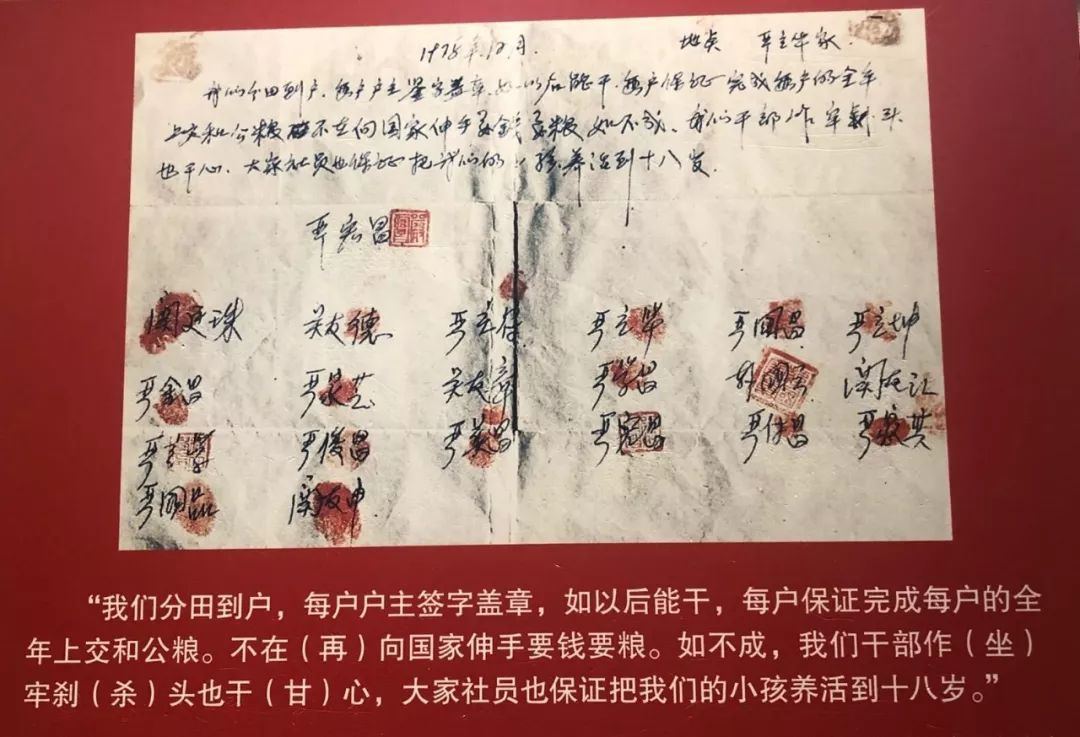 1978年12月. 地点 严立华家
我们分田到户,每户户主签字盖章,如以后能干,每户保证完成每户的全年
上交和公粮 不在向国家伸手要钱要粮 如不成,我们干部作牢刹头
也干心,大家社员也保证把我们的小孩养活到十八岁.
严宏昌
关廷珠 关友德 严立符 严立华 严国昌 严立坤
严金昌 严家芝 关友章 严学昌 韩国云 关友江
严立学 严俊昌 严美昌 严宏昌 严付昌 严家其
严国品 关友申
“我们分田到户,每户户主签字盖章,如以后能干,每户保证完成每户的全
年上交和公粮。不在(再)向国家伸手要钱要粮。如不成,我们干部作(坐)
牢刹(杀)头也干(甘)心,大家社员也保证把我们的小孩养活到十八岁。”